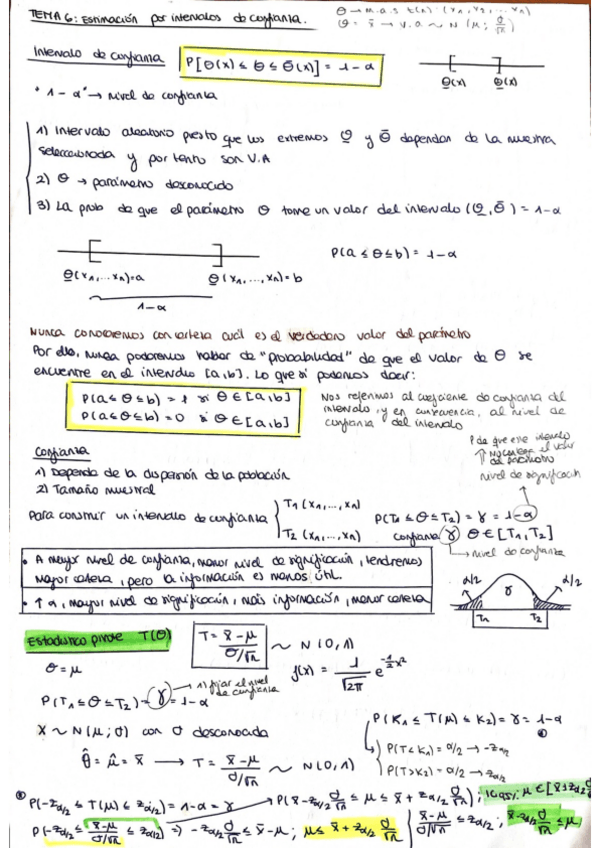 TEMA 6: Estimación por intervalos de confianza.
θ → m.a.s t(n): (x₁, x₂, ..., xₙ)
θ̂ = x̄ → v.a ~ N(μ; σ/√n)
Intervalo de confianza
P[θ(x) ≤ θ ≤ θ̄(x)] = 1-α
θ(x) θ̄(x)
"1-α" → nivel de confianza
1) Intervalo aleatorio puesto que los extremos θ y θ̄ dependen de la muestra
seleccionada y por tanto son V.A
2) θ → parámetro desconocido
3) La prob de que el parámetro θ tome un valor del intervalo (θ, θ̄) = 1-α
P(a ≤ θ ≤ b) = 1-α
θ(x₁, ... xₙ)=a θ(x₁, ..., xₙ)=b
1-α
Nunca conoceremos con certeza cuál es el verdadero valor del parámetro
Por ello, nunca podremos hablar de "probabilidad" de que el valor de θ se
encuentre en el intervalo [a,b]. Lo que sí podemos decir:
P(a≤θ≤b) = 1 si θ∈[a,b]
P(a≤θ≤b)=0 si θ∈[a,b]
Nos referimos al coeficiente de confianza del
intervalo, y en consecuencia, al nivel de
confianza del intervalo
P de que este intervalo
no contenga el valor
del parámetro
nivel de significación
Confianza
1) Depende de la dispersión de la población
2) Tamaño muestral
Para construir un intervalo de confianza
T₁ (x₁, ..., xₙ)
T₂ (x₁, ..., xₙ)
P(T₁ ≤ θ ≤ T₂) = γ = 1-α
confianza γ θ∈[T₁, T₂]
nivel de confianza
• A mayor nivel de confianza, menor nivel de significación, tendremos
mayor certeza, pero la información es menos útil.
• ↑ α, mayor nivel de significación, más información, menor certeza
α/2 γ α/2
T₁ T₂
Estadístico pivote T(θ)
T = x̄-μ / σ/√n ~ N(0,1)
θ = μ
f(x) = 1/√2π e^(-½x²)
P(T₁≤θ≤T₂) = γ = 1-α
1) fijar el nivel
de confianza
X ~ N(μ; σ) con σ desconocada
P(K₁ ≤ T(μ) ≤ K₂) = γ = 1-α
P(T<K₁) = α/2 → -z α/2
P(T>K₂) = α/2 → z α/2
θ̂ = μ̂ = x̄ → T = x̄-μ / σ/√n ~ N(0,1)
P(-z α/2 ≤ T(μ) ≤ z α/2) = 1-α = γ
P(x̄-z α/2 σ/√n ≤ μ ≤ x̄+z α/2 σ/√n);
P(-z α/2 ≤ x̄-μ / σ/√n ≤ z α/2) ⇒ -z α/2 σ/√n ≤ x̄-μ; μ ≤ x̄+z α/2 σ/√n
x̄-μ / σ/√n ≤ z α/2; x̄-z α/2 σ/√n ≤ μ